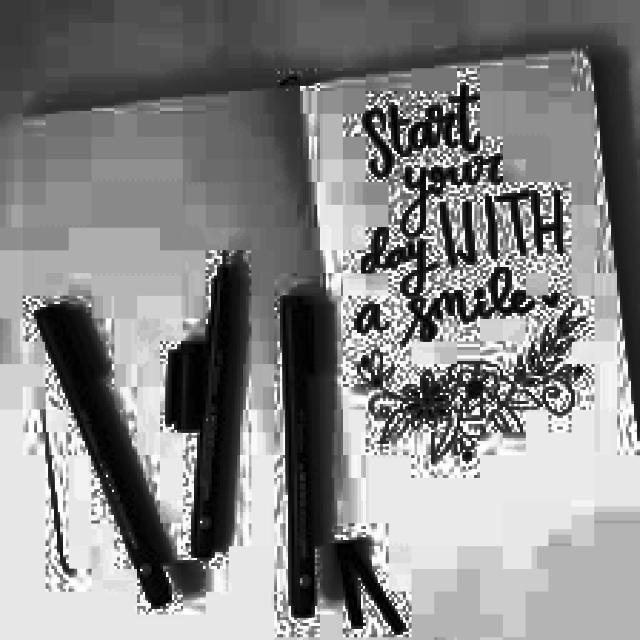 Start
your
day WITH
a smile